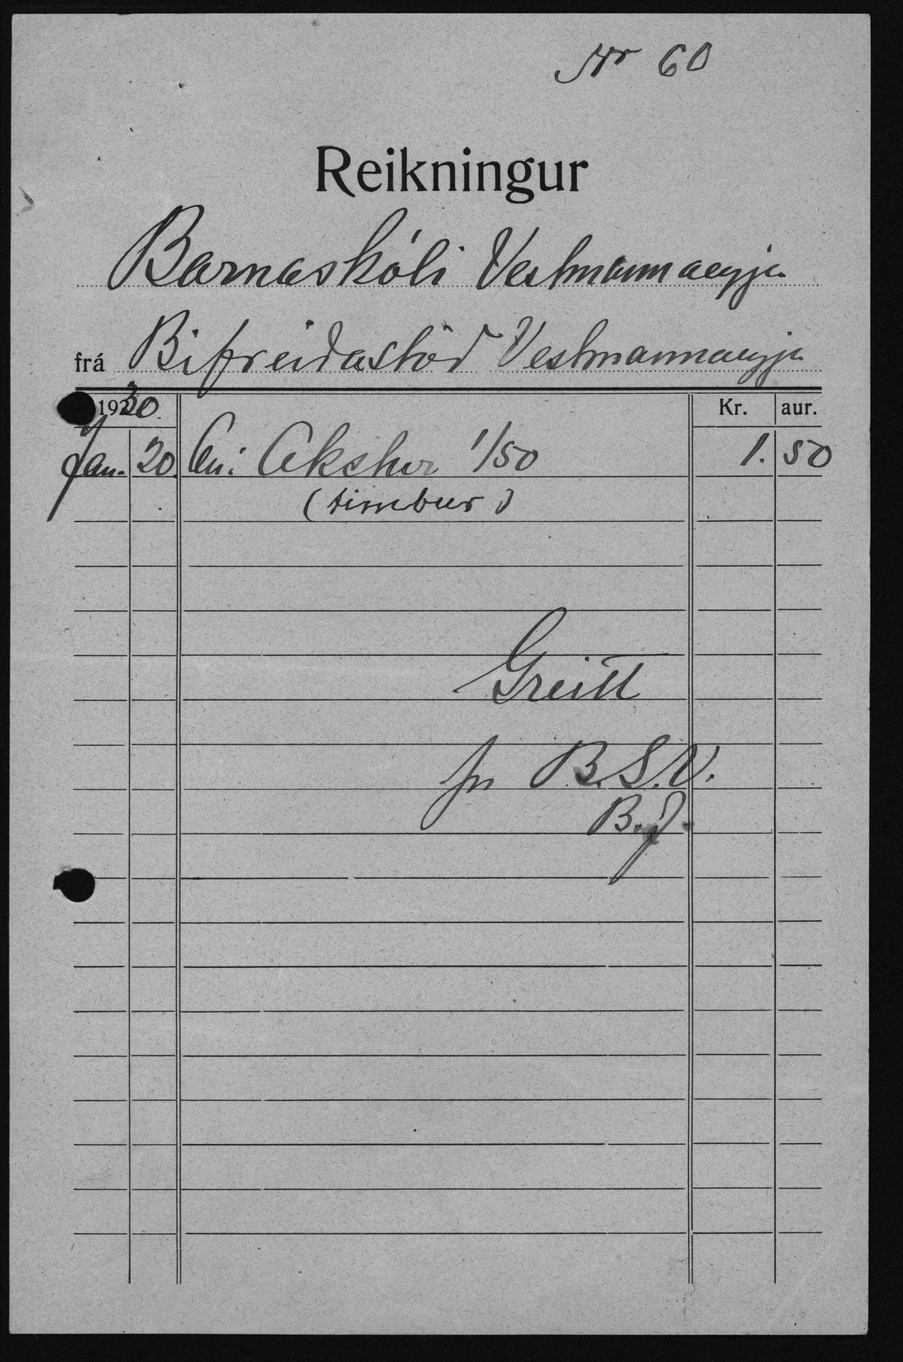 Nr 60
Reikningur
Barnaskóli Vestmannaeyja
frá Bifreiðastöð Vestmannaeyja
1930 Kr. aur.
Jan. 20. An: Akstur 1/50 1. 50
(timbur)
Greitt
pr B.S.V.
B.J.